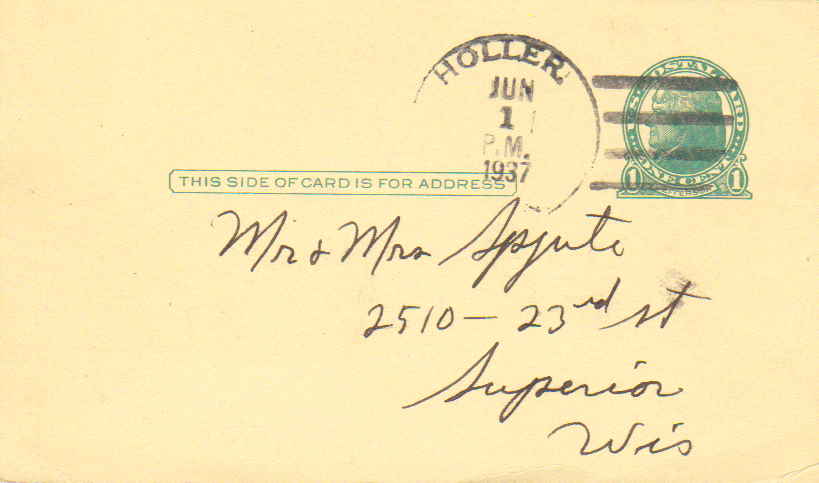 HOLLER
JUN
1
P.M.
1937
U.S. POSTAL CARD
ONE CENT
1 1
THIS SIDE OF CARD IS FOR ADDRESS
Mr & Mrs
2510 – 23rd st
Superior
Wis